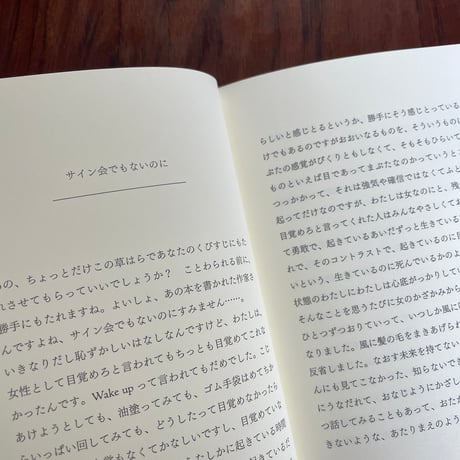 サイン会でもないのに
の、ちょっとだけこの草はらであなたのくびすじにもた
れさせてもらっていいでしょうか？　ことわられる前に、
勝手にもたれますね。よいしょ、あの本を書かれた作家さ
んですよね、サイン会でもないのにすみません……。
いきなりだし恥ずかしいはなしなんですけど、わたしは、
女性として目覚めろと言われてもちっとも目覚めてこれな
かったんです。Wake up って言われてもだめでした。こじ
あけようとしても、油塗ってみても、ゴム手袋はめてちか
らいっぱい回してみても、どうしたって目覚めなかったら
もなくてかなしいですし、目覚めていな
しかに起きている時間
らしいと感じとるというか、勝手にそう感じとっている
けでもあるのですがおおいなるものを、そういうものに
ぶたの感覚がぴくりともしなくて、そもそもひらいて
ものといえば目であってまぶたなのかっていうと
つっかかって、それは強気や確信ではなくてふと
起ってだけなのですが、わたしは女なのにと、残
目覚めろと言ってくれた人はみんなやさしくてお
て勇敢で、起きているあいだずっと生きている
れで、そのコントラストで、起きているのに目
いという、生きているのに死んでいるかのよ
状態のわたしにわたしは心底がっかりしてい
そんなことを思うたびに女のかざかみから
ひとつずつおりていって、いつしか風に
なりました。風に髪の毛をまきあげられ
反省しました。なおす未来を持てない
んにも見てこなかった、知らないでき
にうなだれて、おなじようにかざし
つ話してみることもあって、おたが
きないような、あたりまえのよう